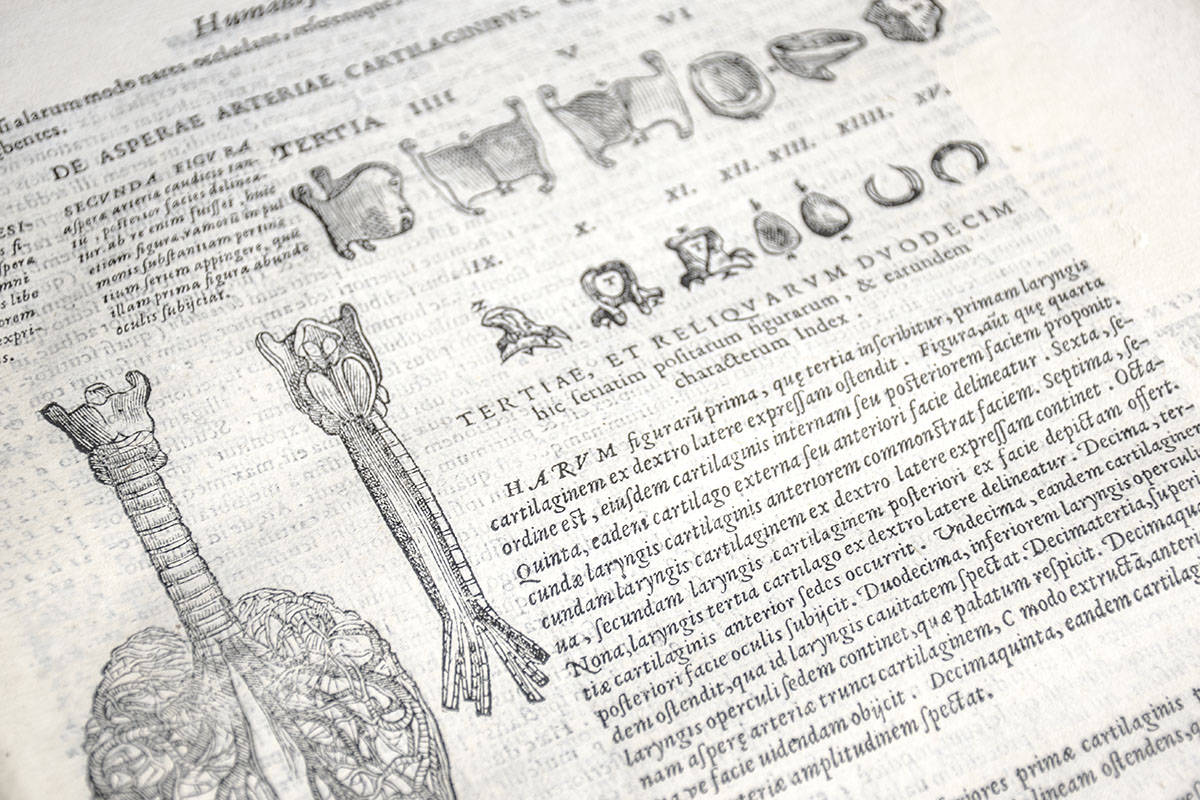 Humani
ſi alarum modo nares occludant,
gbentes.
DE ASPERAE ARTERIAE CARTILAGINIBVS.
SECVNDA FIGVRA
aſperæ arteriæ caudicis tan-
tũ, poſterior facies delinea-
tur. ab re enim fuiſſet, huic
etiam figuræ, ramorũ in pul
monis ſubſtantiam pertinẽ
tium ſeriem appingere, quũ
illam prima figura abunde
oculis ſubijciat.
TERTIA IIII V VI
IX. X. XI. XII. XIII. XIIII. XV.
TERTIAE, ET RELIQVARVM DVODECIM
hic ſeriatim poſitarum figurarum, & earundem
characterum Index.
HARVM figurarũ prima, quę tertia inſcribitur, primam laryngis
cartilaginem ex dextro latere expreſſam oſtendit. Figura, aũt quę quarta
ordine eſt, eiuſdem cartilaginis internam ſeu poſteriorem faciem proponit.
Quinta, eadem cartilago externa ſeu anteriori facie delineatur. Sexta, ſe-
cundæ laryngis cartilaginis anteriorem commonſtrat faciem. Septima, ſe-
cundam laryngis cartilaginem ex dextro latere expreſſam continet. Octa-
ua, ſecundam laryngis cartilaginem poſteriori ex facie depictam offert.
Nona, laryngis tertia cartilago ex dextro latere delineatur. Decima, ter-
tiæ cartilaginis anterior ſedes occurrit. Undecima, eandem cartilaginem
poſteriori facie oculis ſubijcit. Duodecima, inferiorem laryngis operculi
dem oſtendit, qua id laryngis cauitatem ſpectat. Decimatertia, ſuper
laryngis operculi ſedem continet, quæ palatum reſpicit. Decimaqu
nam aſperę arteriæ trunci cartilaginem, C modo extructã, anteri
ua ve facie uidendam obijcit. Decimaquinta, eandem cartilag
teriæ amplitudinem ſpectat.
iores primæ cartilaginis
lineam oſtendens,